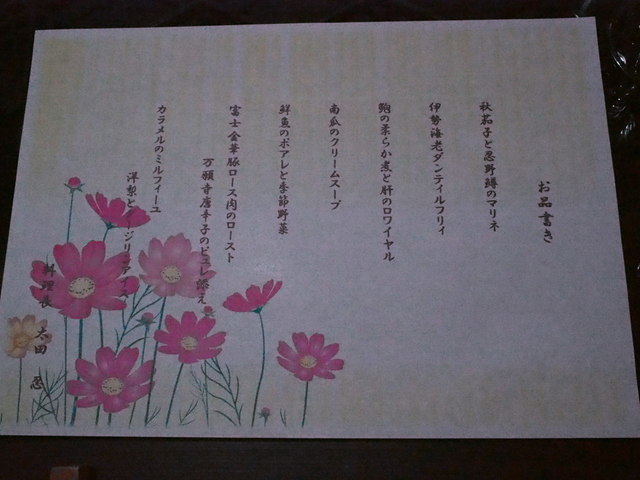 お品書き
秋茄子と忍野鱒のマリネ
伊勢海老ダンティルフリィ
鮑の柔らか煮と肝のロワイヤル
南瓜のクリームスープ
鮮魚のポアレと季節野菜
富士金華豚ロース肉のロースト
万願寺唐辛子のピュレ添え
カラメルのミルフィーユ
洋梨と
料理長 太田 忍